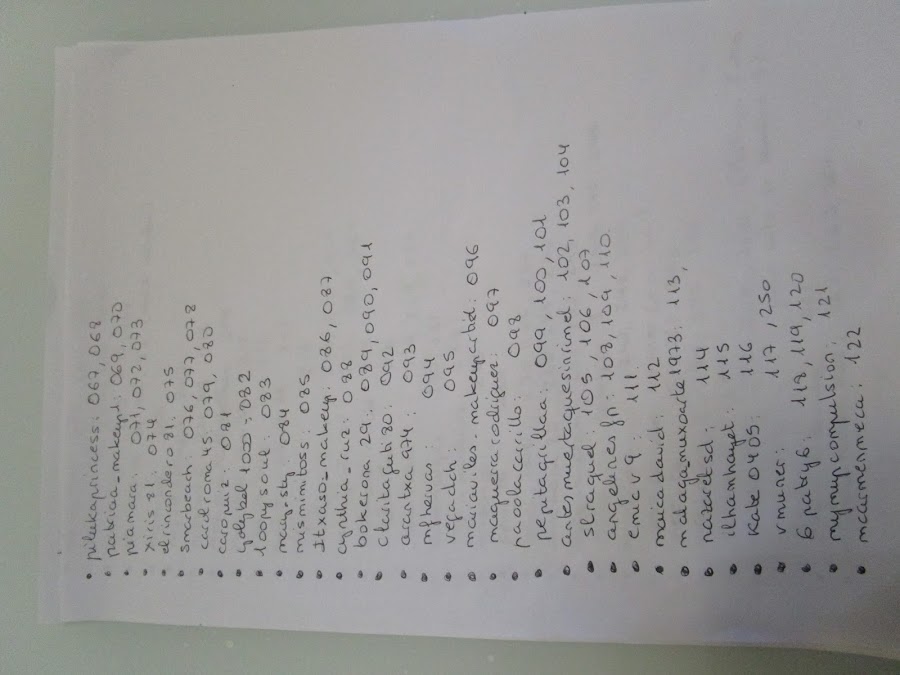 • pilukaprincess: 067, 068
• patricia_makeup1: 069, 070
• piamara: 071, 072, 073
• xiris81: 074
• elrincondero81: 075
• smabeach: 076, 077, 078
• carolroma45: 079, 080
• caroruiz: 081
• gdybel1000: 082
• 100pysoul: 083
• may_sty 084
• musmimitos 085
• Itxaso_makeup: 086, 087
• cynthia_ruz: 088
• bokerona 29: 089, 090, 091
• claritageti80: 092
• arantxa974: 093
• mfhervas: 094
• vefaldch: 095
• mairaviles_makeupartist: 096
• maguerrarodriguez: 097
• paolacarrillo: 098
• pepitagrillaa: 099, 100, 101
• antesmuertaquesinrimel: 102, 103, 104
• straquel: 105, 106, 107
• angelinesfn: 108, 109, 110.
• emicv9: 111
• maicadavid: 112
• malagamuxoarte1973: 113,
• nazaretsd: 114
• ilhamhayet: 115
• Kate0405: 116
• vmuner: 117, 250
• 6patry6: 118, 119, 120
• mymupcompulsion: 121
• mcarmenmeca: 122